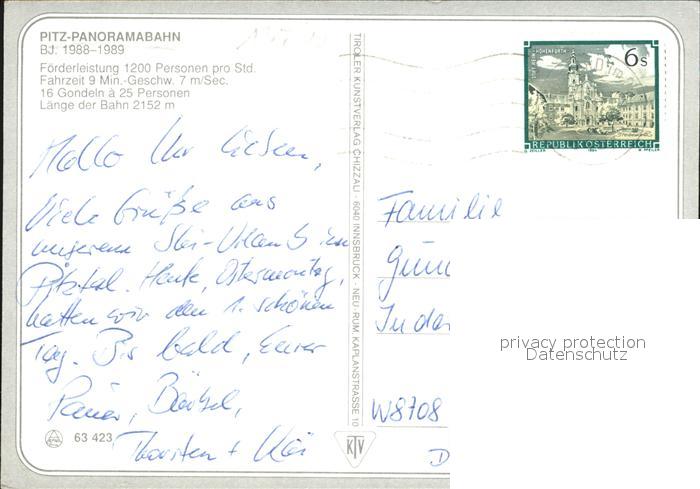 PITZ-PANORAMABAHN
BJ. 1988–1989
Förderleistung 1200 Personen pro Std.
Fahrzeit 9 Min.-Geschw. 7 m/Sec.
16 Gondeln à 25 Personen
Länge der Bahn 2152 m
Hallo Ihr Lieben,
Viele Grüße aus
unserem Ski-Urlaub im
Pitztal. Heute, Ostermontag,
hatten wir den 1. schönen
Tag. Bis bald, Eurer
Rainer, Bärbel,
Thorsten + Kai
63 423
TIROLER KUNSTVERLAG CHIZZALI · 6040 INNSBRUCK - NEU-RUM, KAPLANSTRASSE 10
KTV
6 S
REPUBLIK ÖSTERREICH
Familie
In der
W8708
D
privacy protection
Datenschutz